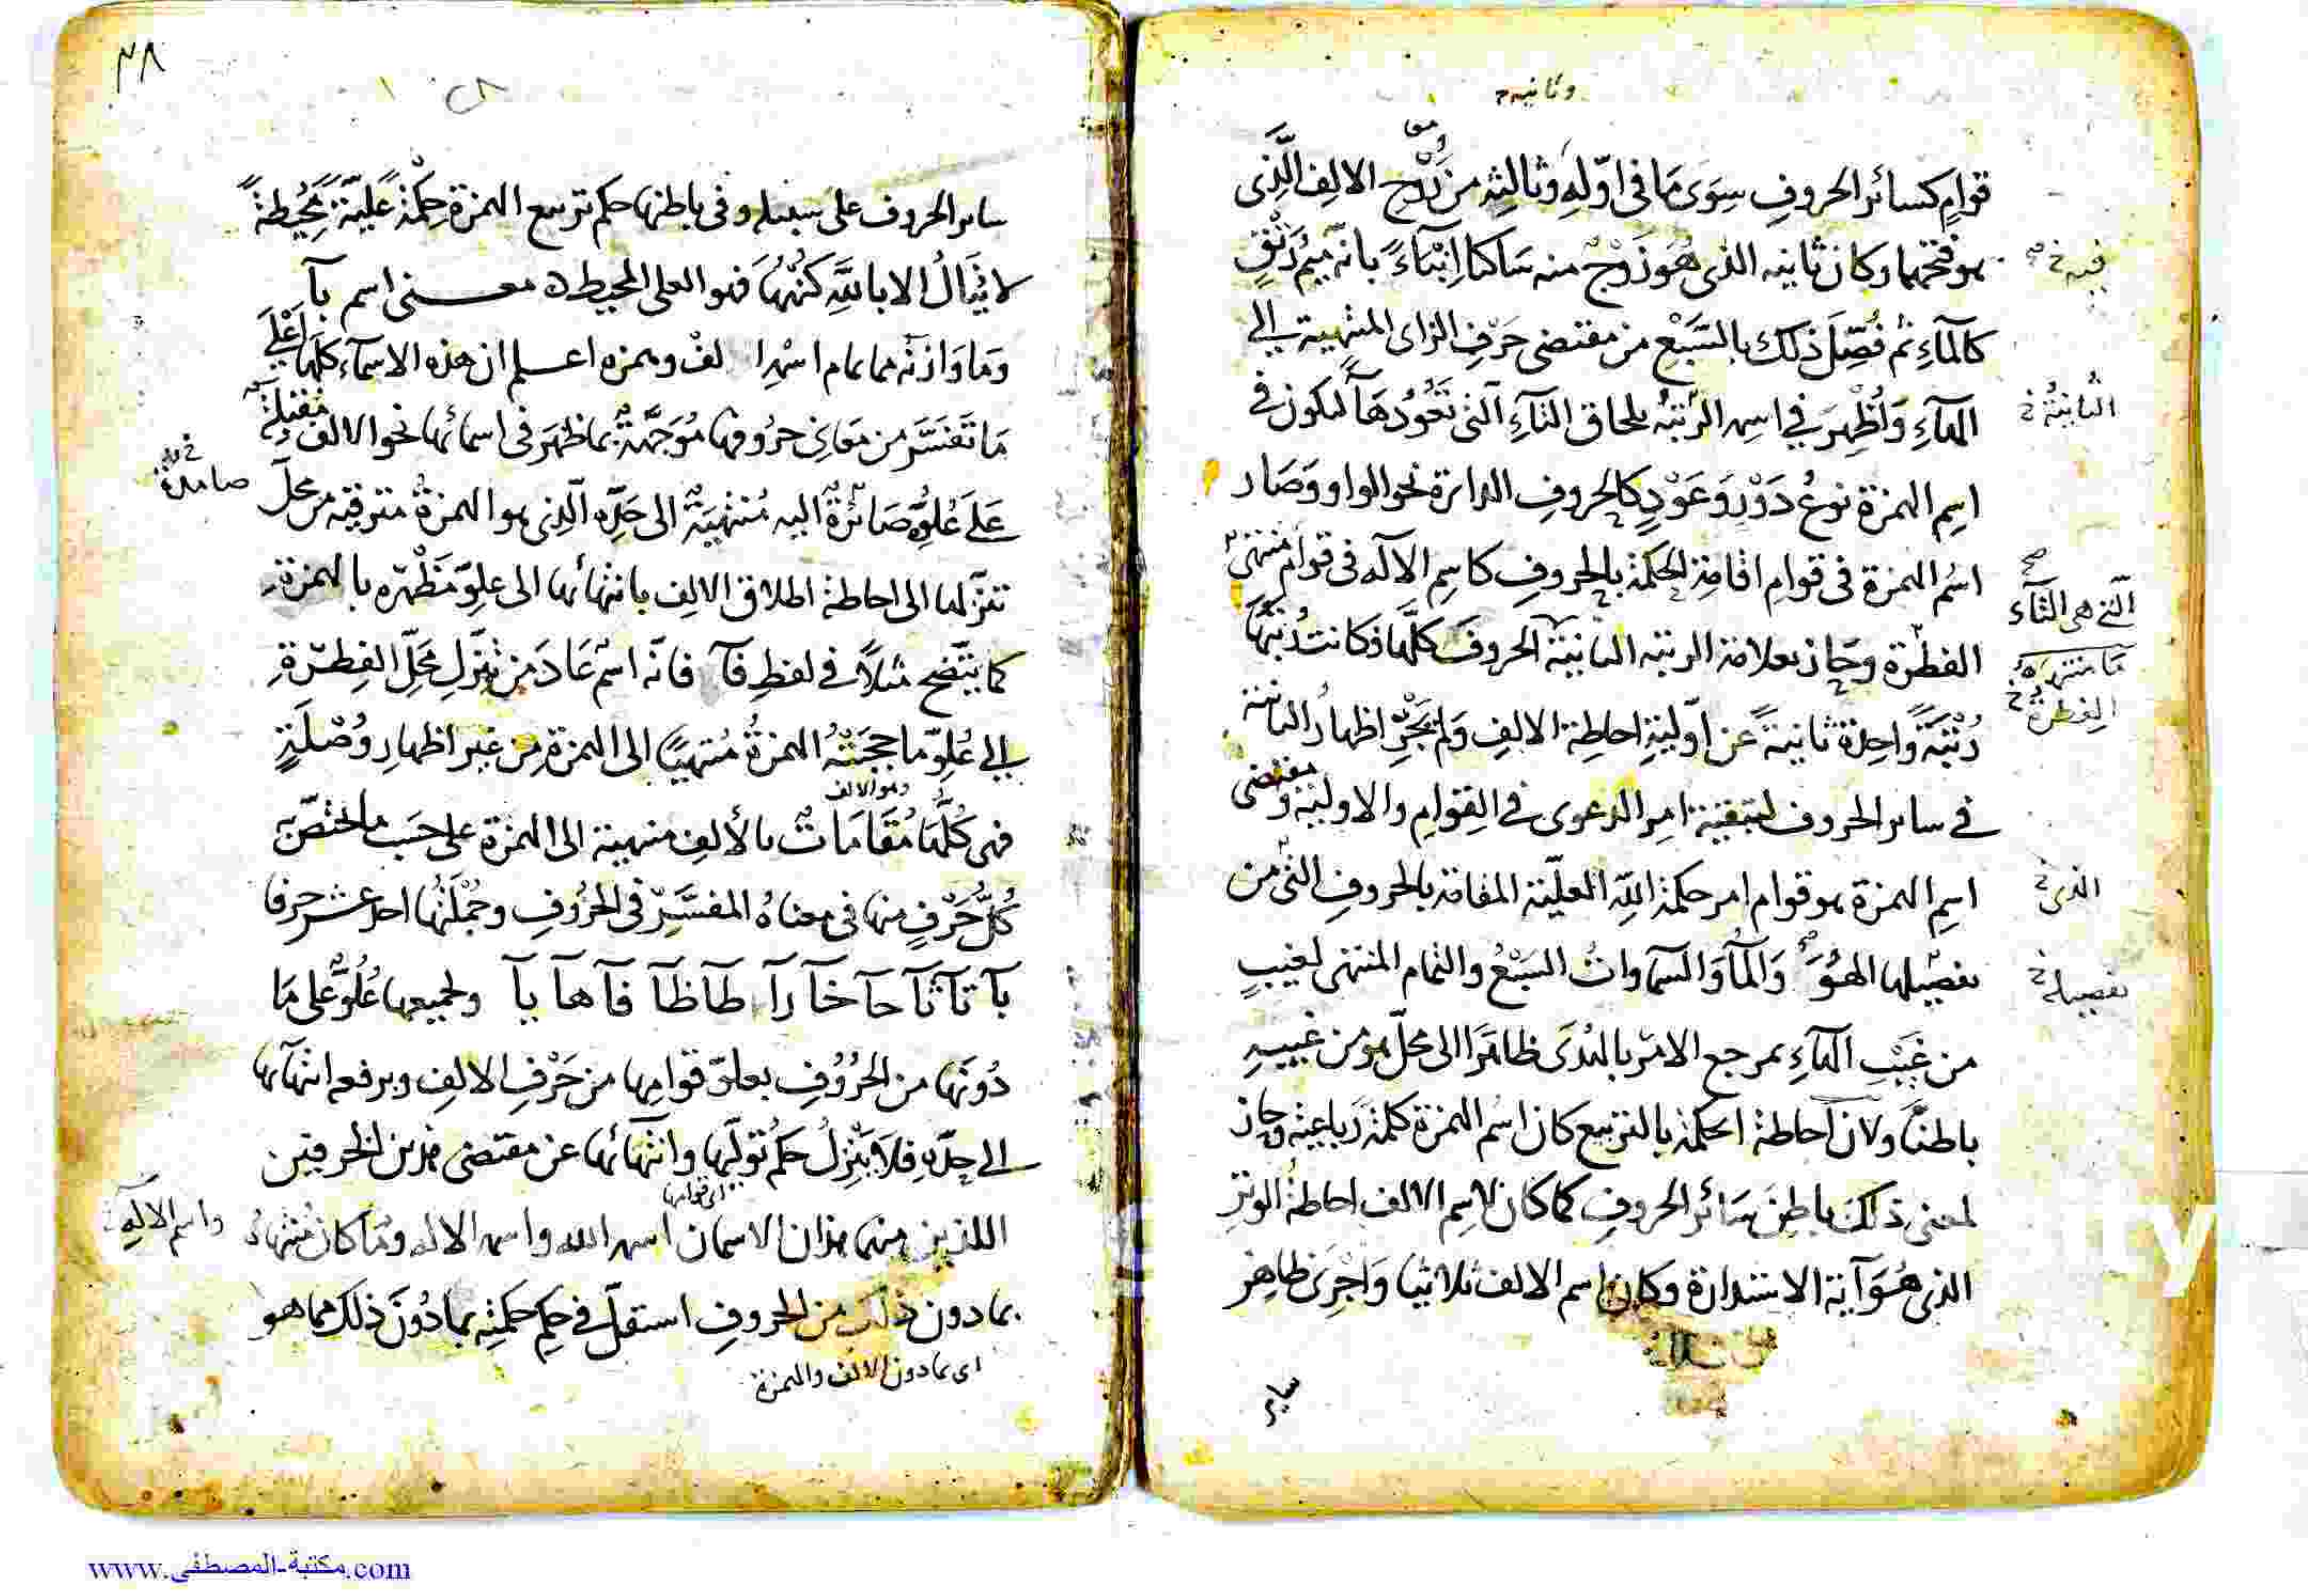 وثانيه
قوام كسائر الحروف سوى ما فى اوّله وثالثه من زوج الالف الّذى
هو فتحهما وكان ثانيه الذى هو زوج منه ساكنا انباءً بانه ميم رتق
كالماء ثم فُصّل ذلك بالسبع من مقتضى حرف الزاى المنتهية الى
الماء واُظهر فى اسم الرتبة بلحاق التاء التى تعودها ليكون فى
اسم الهمزة نوع دور وعود كالحروف الدائرة نحو الواو وصار
اسم الهمزة فى قوام اقامة الحكمة بالحروف كاسم الاله فى قوام
الفطرة وحاز بعلامة الرتبة الثانية الحروف كلّها اذ كانت رتبتها
رتبةً واحدة ثانيةً عن اوّلية احاطة الالف ولم يجر اظهار الثانية
فى سائر الحروف لتبقية امر الدعوى فى القوام والاولية ومقتضى
اسم الهمزة هو قوام امر حكمة الله العليّة المقامة بالحروف التى من
تفصيلها الهُوَ والماء والسماوات السبع والتمام المنتهى لغيب
من غيب الماء بمرجع الامر بالبدى ظاهرًا الى محل هو من غيبه
باطنًا ولان احاطة الحكمة بالتربيع كان اسم الهمزة كلمة رباعية وحاز
لمعنى ذلك باطن سائر الحروف كما كان لاسم الالف احاطة الوتر
الذى هو آية الاستدارة وكان اسم الالف ثلاثيا واجرى ظاهر
سائر
الثانية
التى هى التاء
الفطرة
الذى
تفصيله
٣٨
سائر الحروف على سبيله وفى باطنها حكم تربيع الهمزة حكمةً عليّةً محيطةً
لا ينال الا بالله كنهها فهو العلى المحيط معنى اسم بآ
وما وازنه مما تمام اسمه الف وهمزه اعلم ان هذه الاسماء كلها اعلى
ما تفسّر من معانى حروفها مُوَجّهةٌ بما ظهر فى اسمائها نحو الالف مقبلة
على علوّه صائرة اليه منتهية الى حدّه الّذى هو الهمزة مترقية من محل
تنزّلها الى احاطة اطلاق الالف بانتهائها الى علوّ مظهره بالهمزة
كما يتّضح مثلاً فى لفظ فآ فانه اسم عاد من تنزّل محلّ الفطرة
الى علوّ ما حجبته الهمزة منتهيًا الى الهمزة من غير اظهار وصلة
وهو الالف
فهى كلّها مقامات بالألف منتهية الى الهمزة على حسب ما اختصّ به
كلّ حرف منها فى معناه المفسّر فى الحروف وجملتها احد عشر حرفا
بآ تآ ثآ حآ خآ رآ طآ ظآ فآ هآ يآ ولجميعها علوّ على ما
دونها من الحروف بعلوّ قوامها من حرف الالف وبرفعه انتهائها
الى حدّه فلا ينزل حكم تولّيها وانتهائها عن مقتضى هذين الحرفين
اى قوامها
اللذين منهما هذان الاسمان اسم الله واسم الاله وما كان منتهاه
بما دون ذلك من الحروف استقلّ فى حكم حكمته بما دون ذلك مما هو
اى بما دون الالف والهمزة
واسم الاله
www.مكتبة-المصطفى.com